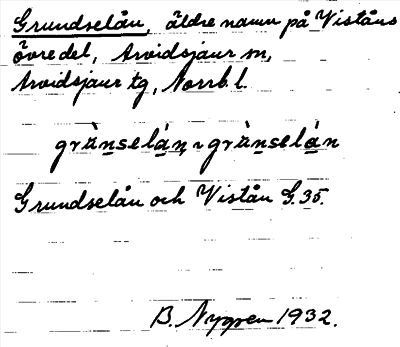 Grundselån, äldre namn på Viståns
övre del, Arvidsjaur sn,
Arvidsjaur tg, Norrb. l.
grùnselán, ~ grùnselán
Grundselån och Vistån G. 35.
B. Nygren 1932.